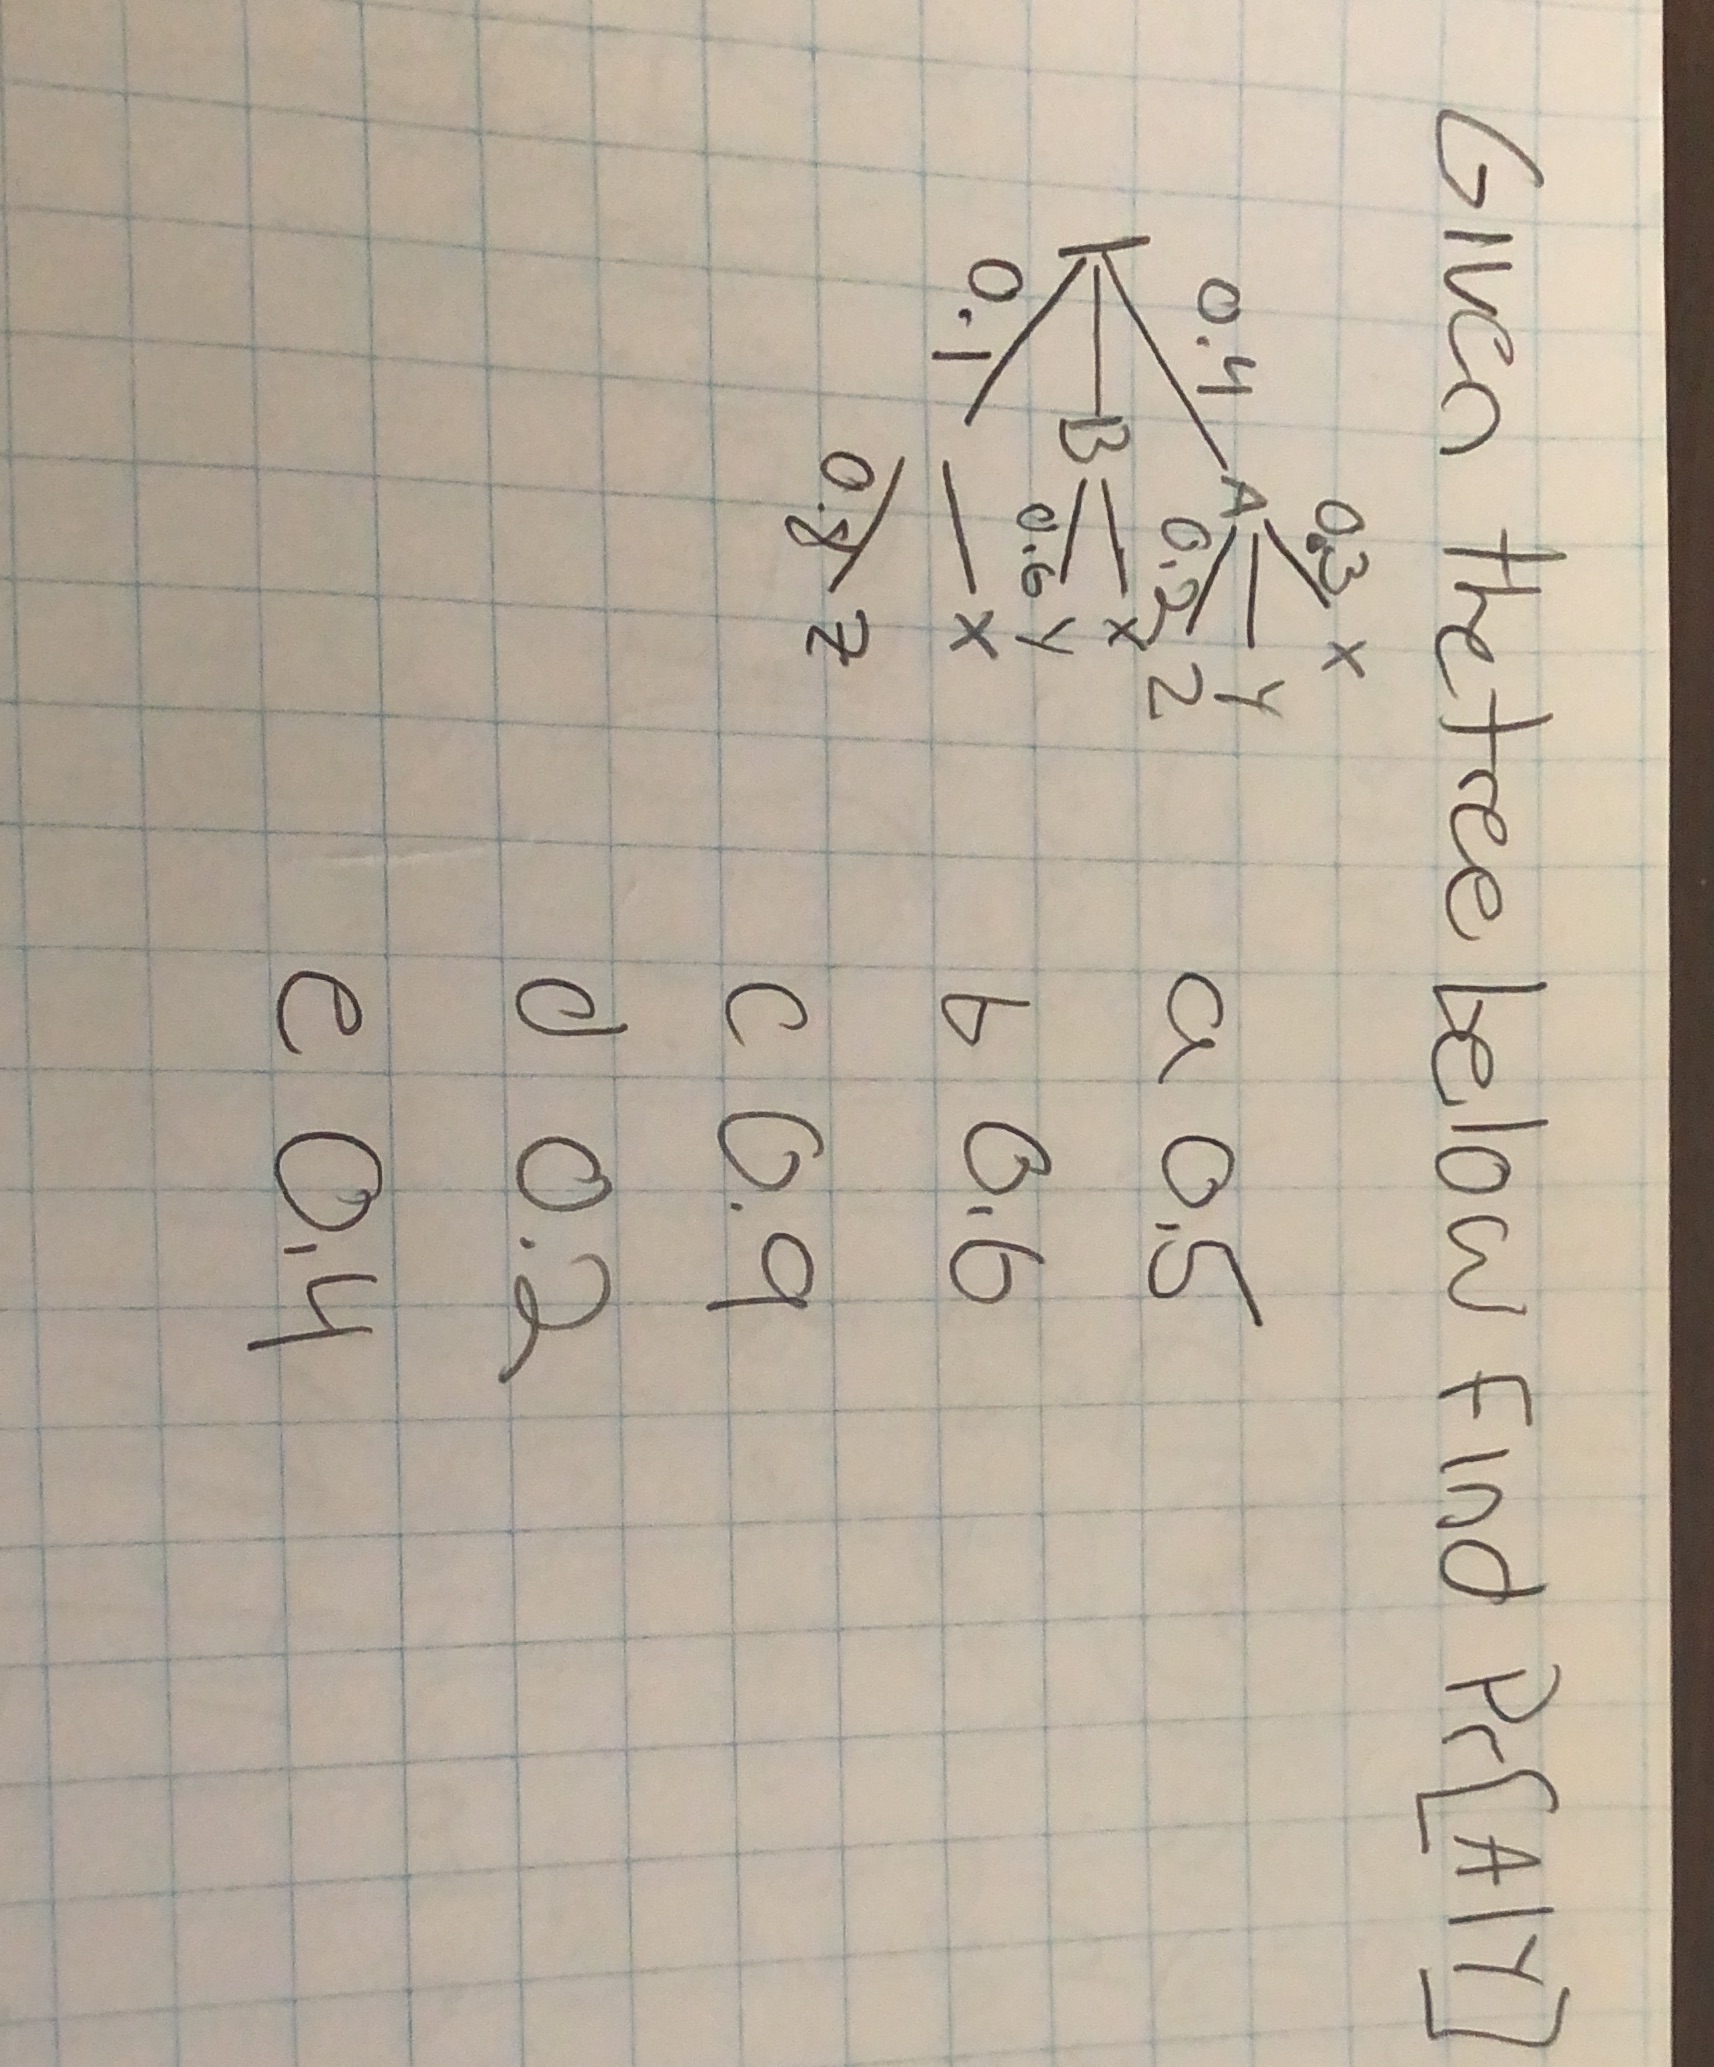 Given the tree below Find Pr[A|Y]
0.3 X
0.4 A Y
0.2 Z
B X
0.6 Y
0.1 X
0.8 Z
a 0.5
b 0.6
c 0.9
d 0.2
e 0.4